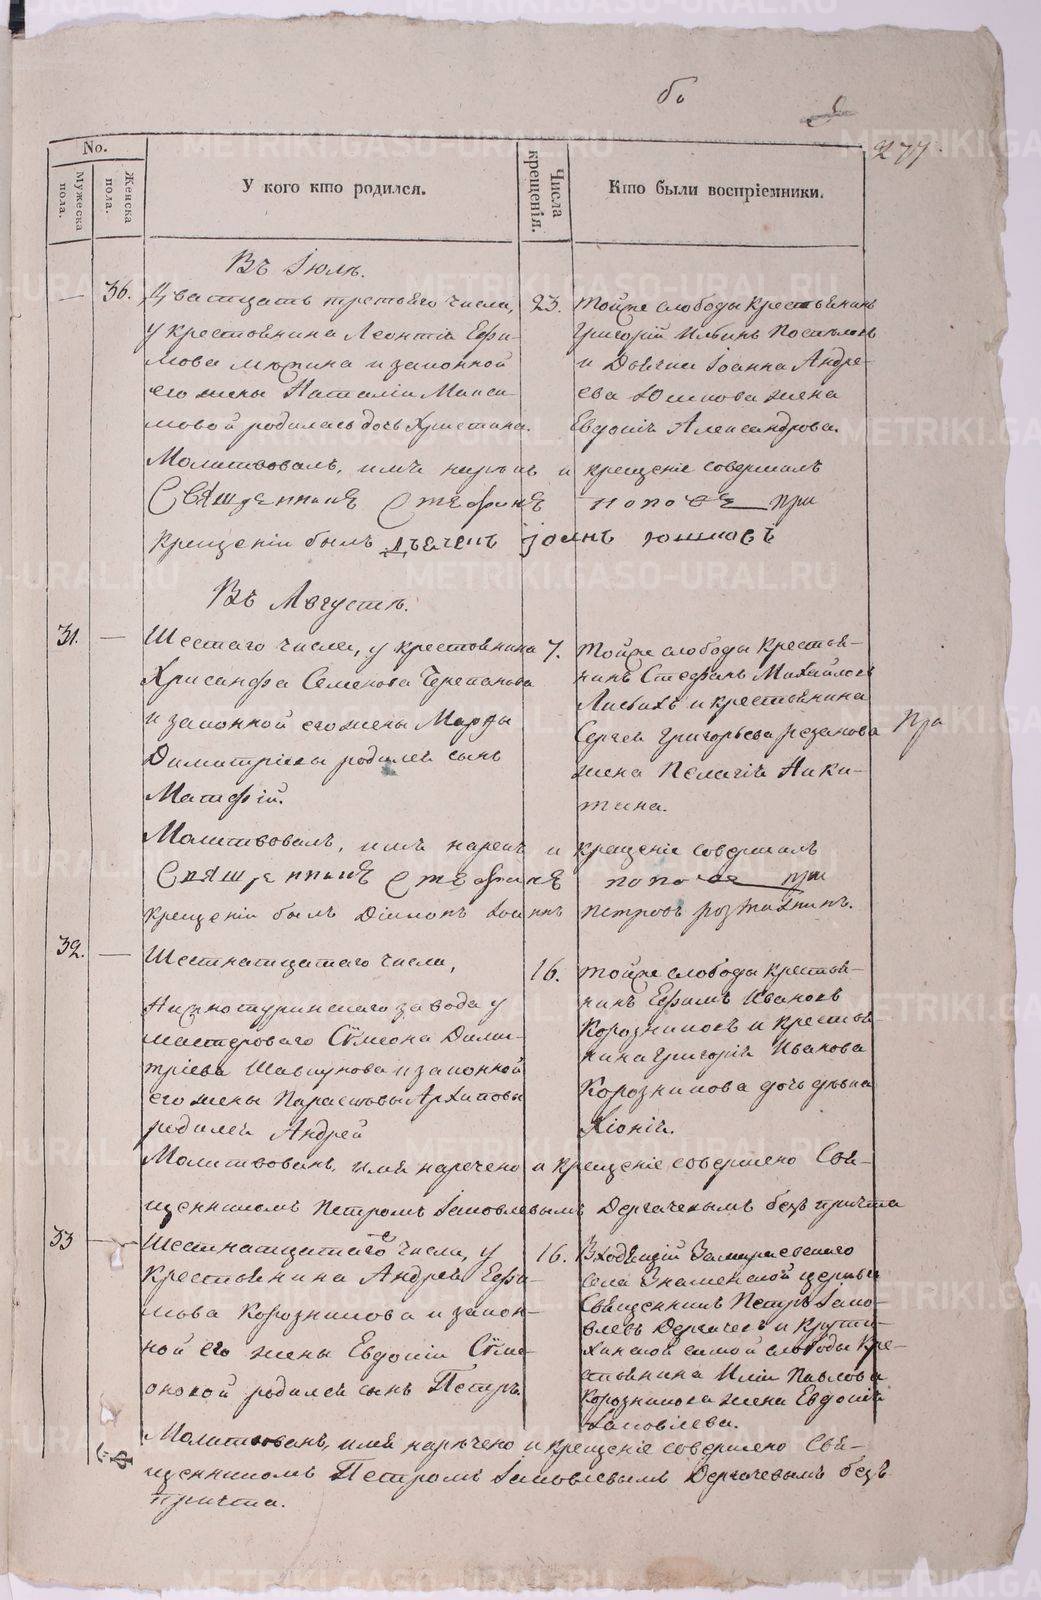 277
No.
Мужеска пола.
Женска пола.
У кого кто родился.
Числа крещенія.
Кто были воспріемники.
Въ Іюлѣ.
36.
Дватцать третьяго числа,
у крестьянина Леонтія Ефи-
мова и законной
его жены Наталіи Макси-
мовой родилась дочь Христина.
23.
тойже слободы крестьянинъ
Григорій Ильинъ
и Дьячка Іоанна Андре-
ева Юшкова жена
Евдокія Александрова.
Молитвовалъ, имя нарекъ и крещеніе совершалъ
Священникъ Стефанъ Поповъ при
крещеніи былъ дьячекъ Іоанъ Юшковъ
Въ Августѣ.
31.
Шестаго числа, у крестьянина
Хрисанфа Семенова Черепанова
и законной его жены Марфы
Димитріевы родился сынъ
Матфій.
7.
тойже слободы крестья-
нинъ Стефанъ Михайловъ
и крестьянина
Сергея Григорьева Резанова
жена Пелагія Ники-
тина.
при
Молитвовалъ, имя нарекъ и крещеніе совершалъ
Священникъ Стефанъ Поповъ при
крещеніи былъ Діаконъ Іоаннъ Петровъ
32.
Шестнатцатаго числа,
Нижнотуринскаго завода у
мастероваго Сімеона Дими-
тріева и законной
его жены Парасковьи Архиповы
родился Андрей
16.
тойже слободы крестья-
нинъ Ефимъ Ивановъ
Корозниковъ и крестья-
нина Григорія Иванова
Корозникова дочь дѣвка
Хіонія.
Молитвованъ, имя наречено и крещеніе совершено Свя-
щенникомъ Петромъ Іаковлевымъ Дергачевымъ безъ причта
33
Шестнатцатаго числа, у
крестьянина Андрея Ефи-
мова Корозникова и закон-
ной его жены Евдокіи Сіме-
оновой родился сынъ Петръ
16.
села Знаменской церкви
Священникъ Петръ Іако-
влевъ Дергачевъ и
самой слободы кре-
стьянина Иліи Павлова
Корозникова жена Евдокія
Іаковлева.
Молитвованъ, имя наречено и крещеніе совершено Свя-
щенникомъ Петромъ Іаковлевымъ Дергачевымъ безъ
причта.
METRIKI.GASO-URAL.RU